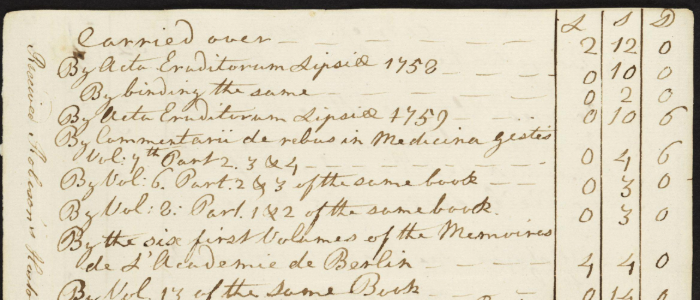 £ S D
Carried over 2 12 0
By Acta Eruditorum Lipsiæ 1758 0 10 0
By binding the same 0 2 0
By Acta Eruditorum Lipsiæ 1759 0 10 6
By Commentarii de rebus in Medicina gestis
Vol: 7th Part 2. 3 & 4 0 4 6
By Vol: 6. Part. 2 & 3 of the same book 0 3 0
By Vol: 8: Part. 1 & 2 of the same book. 0 3 0
By the six first Volumes of the Memoires
de L'Academie de Berlin 4 4 0
By Vol. 13 of the same Book 0 14 0